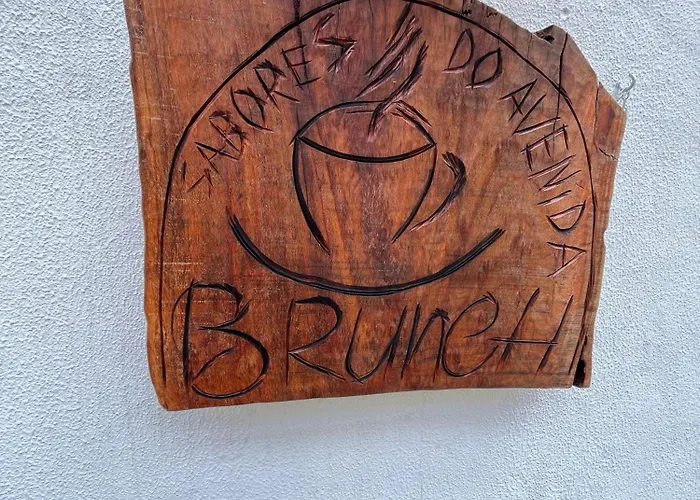 SABORES DO AVENIDA
BRUncH